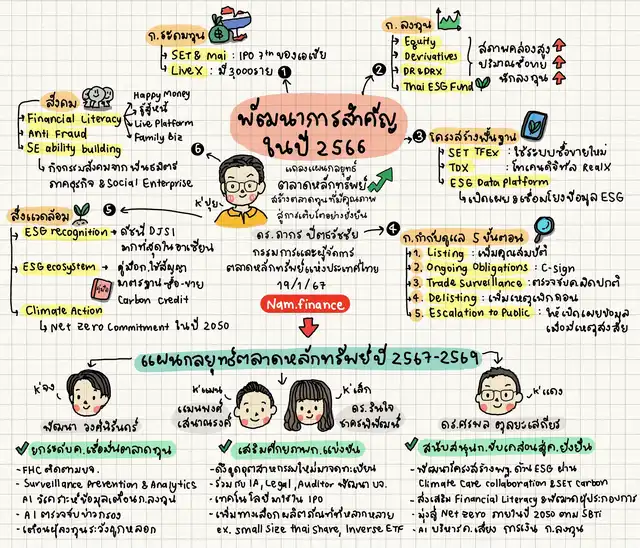 พัฒนาการสำคัญ
ในปี 2566
แถลงแผนกลยุทธ์
ตลาดหลักทรัพย์
สร้างตลาดทุนที่มีคุณภาพ
สู่การเติบโตอย่างยั่งยืน
K'ปุย
ดร.ภากร ปีตธวัชชัย
กรรมการและผู้จัดการ
ตลาดหลักทรัพย์แห่งประเทศไทย
19/1/67
Nam.finance
1
ก.ระดมทุน
SET & mai : IPO 7th ของเอเชีย
LiveX : มี 3,000ราย
2
ก. ลงทุน
Equity
Derivatives
DR & DRX
Thai ESG Fund
สภาพคล่องสูง
ปริมาณซื้อขาย
นักลงทุน
3
โครงสร้างพื้นฐาน
SET TFEX : ใช้ระบบซื้อขายใหม่
TDX : โทเคนดิจิทัล RealX
ESG Data Platform
เปิดเผย & เชื่อมโยงข้อมูล ESG
4
ก.กำกับดูแล 5 ขั้นตอน
1. Listing : เพิ่มคุณสมบัติ
2. Ongoing Obligations : C-Sign
3. Trade Surveillance : ตรวจจับค.ผิดปกติ
4. Delisting : เพิ่มเหตุเพิกถอน
5. Escalation to Public : ให้เปิดเผยข้อมูล
เมื่อมีเหตุสงสัย
5
สิ่งแวดล้อม
ESG recognition → ดัชนี DJSI
มากที่สุดในอาเซียน
ESG ecosystem → คู่มือก.ใช้สัญญา
มาตรฐาน-ซื้อ-ขาย
Carbon Credit
คู่มือ
Climate Action
Net Zero Commitment ในปี 2050
6
สังคม
Financial Literacy
Anti Fraud
SE ability building
Happy Money
รู้สู้หนี้
Live Platform
Family Biz
กิจกรรมสังคมจากพันธมิตร
ภาคธุรกิจ & Social Enterprise
แผนกลยุทธ์ตลาดหลักทรัพย์ปี 2567-2569
K'รอง
K'แมน
แมนพงศ์
เสนาณรงค์
K'เล็ก
ดร.รินใจ
ชาครพิพัฒน์
K'แดง
ดร.ศรพล ตุลยะเสถียร
ยกระดับค.เชื่อมั่นตลาดทุน
- FHC ติดตามบจ.
- Surveillance Prevention & Analytics
AI วิเคราะห์ข้อมูลเตือนก.ลงทุน
- AI ตรวจจับข่าวกรอง
- เตือนผู้ลงทุนระวังถูกหลอก
เสริมศักยภาพก.แข่งขัน
- ดึงดูดอุตสาหกรรมใหม่มาจดทะเบียน
- ร่วมกับ IA, Legal, Auditor พัฒนา บจ.
- เทคโนโลยีมาใช้ใน IPO
- เพิ่มทางเลือกผลิตภัณฑ์ที่หลากหลาย
ex. small Size thai Share, Inverse ETF
สนับสนุนก.ขับเคลื่อนสู่ค.ยั่งยืน
- พัฒนาโครงสร้างพฐ. ด้าน ESG ผ่าน
Climate Care collaboration & SET carbon
- ส่งเสริม Financial Literacy & พัฒนาผู้ประกอบการ
- มุ่งสู่ Net Zero ภายในปี 2050 ตาม SBTi
- AI บริหารค.เสี่ยง การเงิน ก.ลงทุน